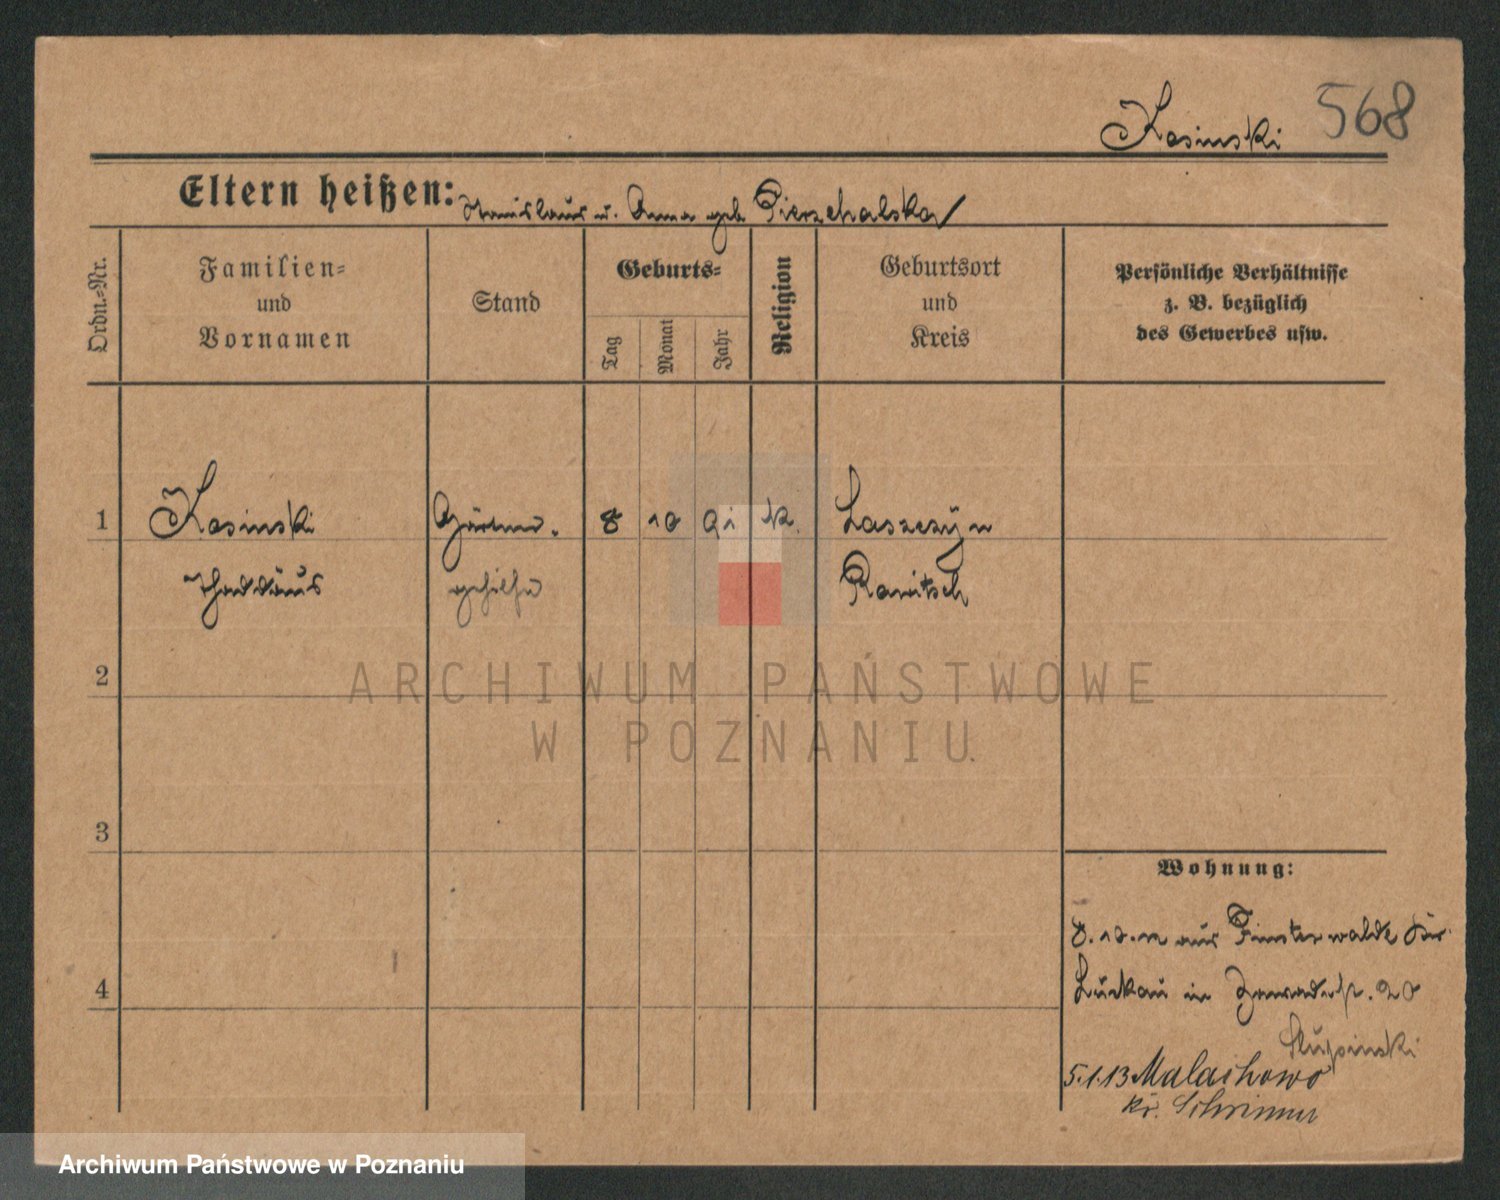 Kosinski 568
Eltern heißen: Stanislaus u. Anna geb. Pierzchalska
Ordn.-Nr.
Familien-
und
Vornamen
Stand
Geburts-
Tag
Monat
Jahr
Religion
Geburtsort
und
Kreis
Persönliche Verhältnisse
z. B. bezüglich
des Gewerbes usw.
1 Kosinski Gärtner- 8 10 91 k. Laszczyn
Thaddäus gehilfe Rawitsch
2
3
4
Wohnung:
8.10.12 aus Finsterwalde Kr.
Luckau in 20
Slupinski
5.1.13 Malachowo
Kr. Schrimm
ARCHIWUM PAŃSTWOWE
W POZNANIU
Archiwum Państwowe w Poznaniu